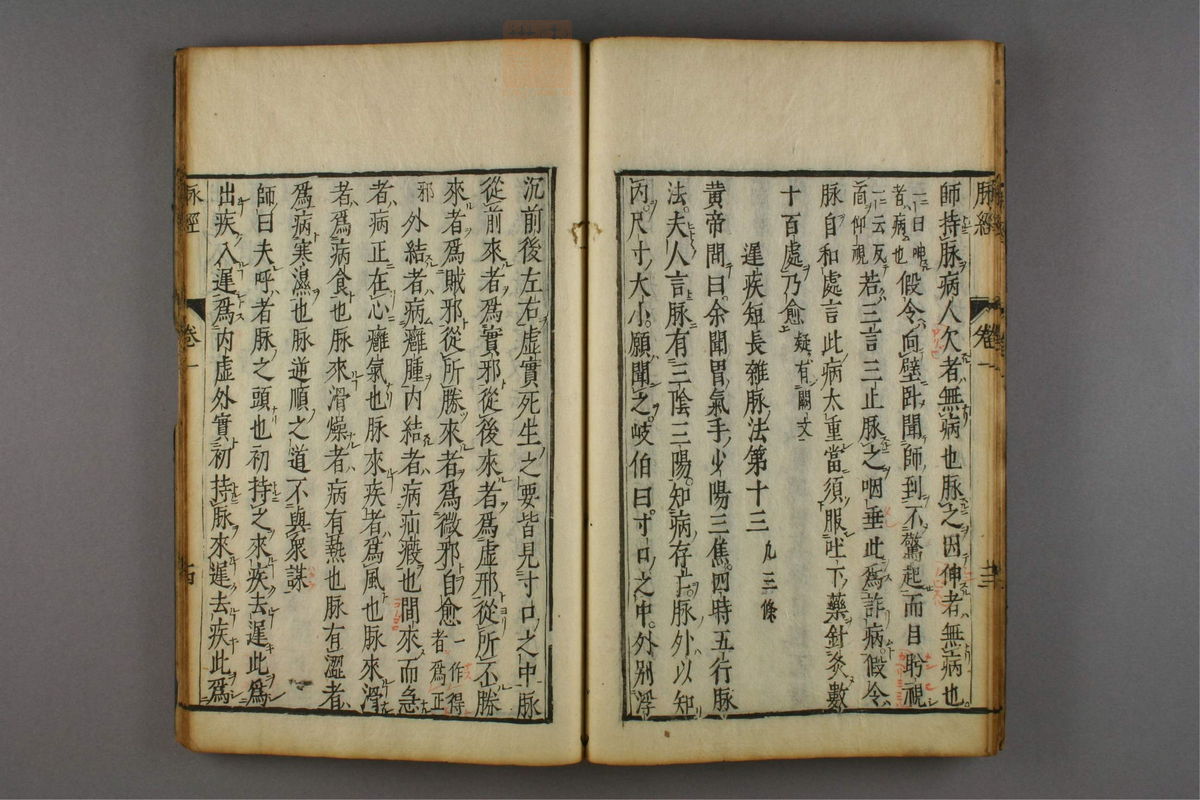 脉經 卷一 十三
師持脉病人欠者無病也脉之因伸者無病也
一曰呻者病也 假令向壁卧聞師到不驚起而目盻視
一云反面仰視 若三言三止脉之咽垂此爲詐病假令
脉自和處言此病太重當須服吐下藥針灸數
十百處乃愈 疑有闕文
遲疾短長雜脉法第十三 凡三條
黄帝問曰余聞胃氣手少陽三焦四時五行脉
法夫人言脉有三陰三陽知病存亡脉外以知
内尺寸大小願聞之岐伯曰寸口之中外别浮
沉前後左右虚實死生之要皆見寸口之中脉
從前來者爲實邪從後來者爲虚邪從所不勝
來者爲賊邪從所勝來者爲微邪自愈 一作得者爲正
邪 外結者病癰腫内結者病疝瘕也間來而急
者病正在心癥氣也脉來疾者爲風也脉來滑
者爲病食也脉來滑燥者病有熱也脉有澀者
爲病寒濕也脉逆順之道不與衆謀
師曰夫呼者脉之頭也初持之來疾去遲此爲
出疾入遲爲内虚外實初持脉來遲去疾此爲
脉經 卷一 十四